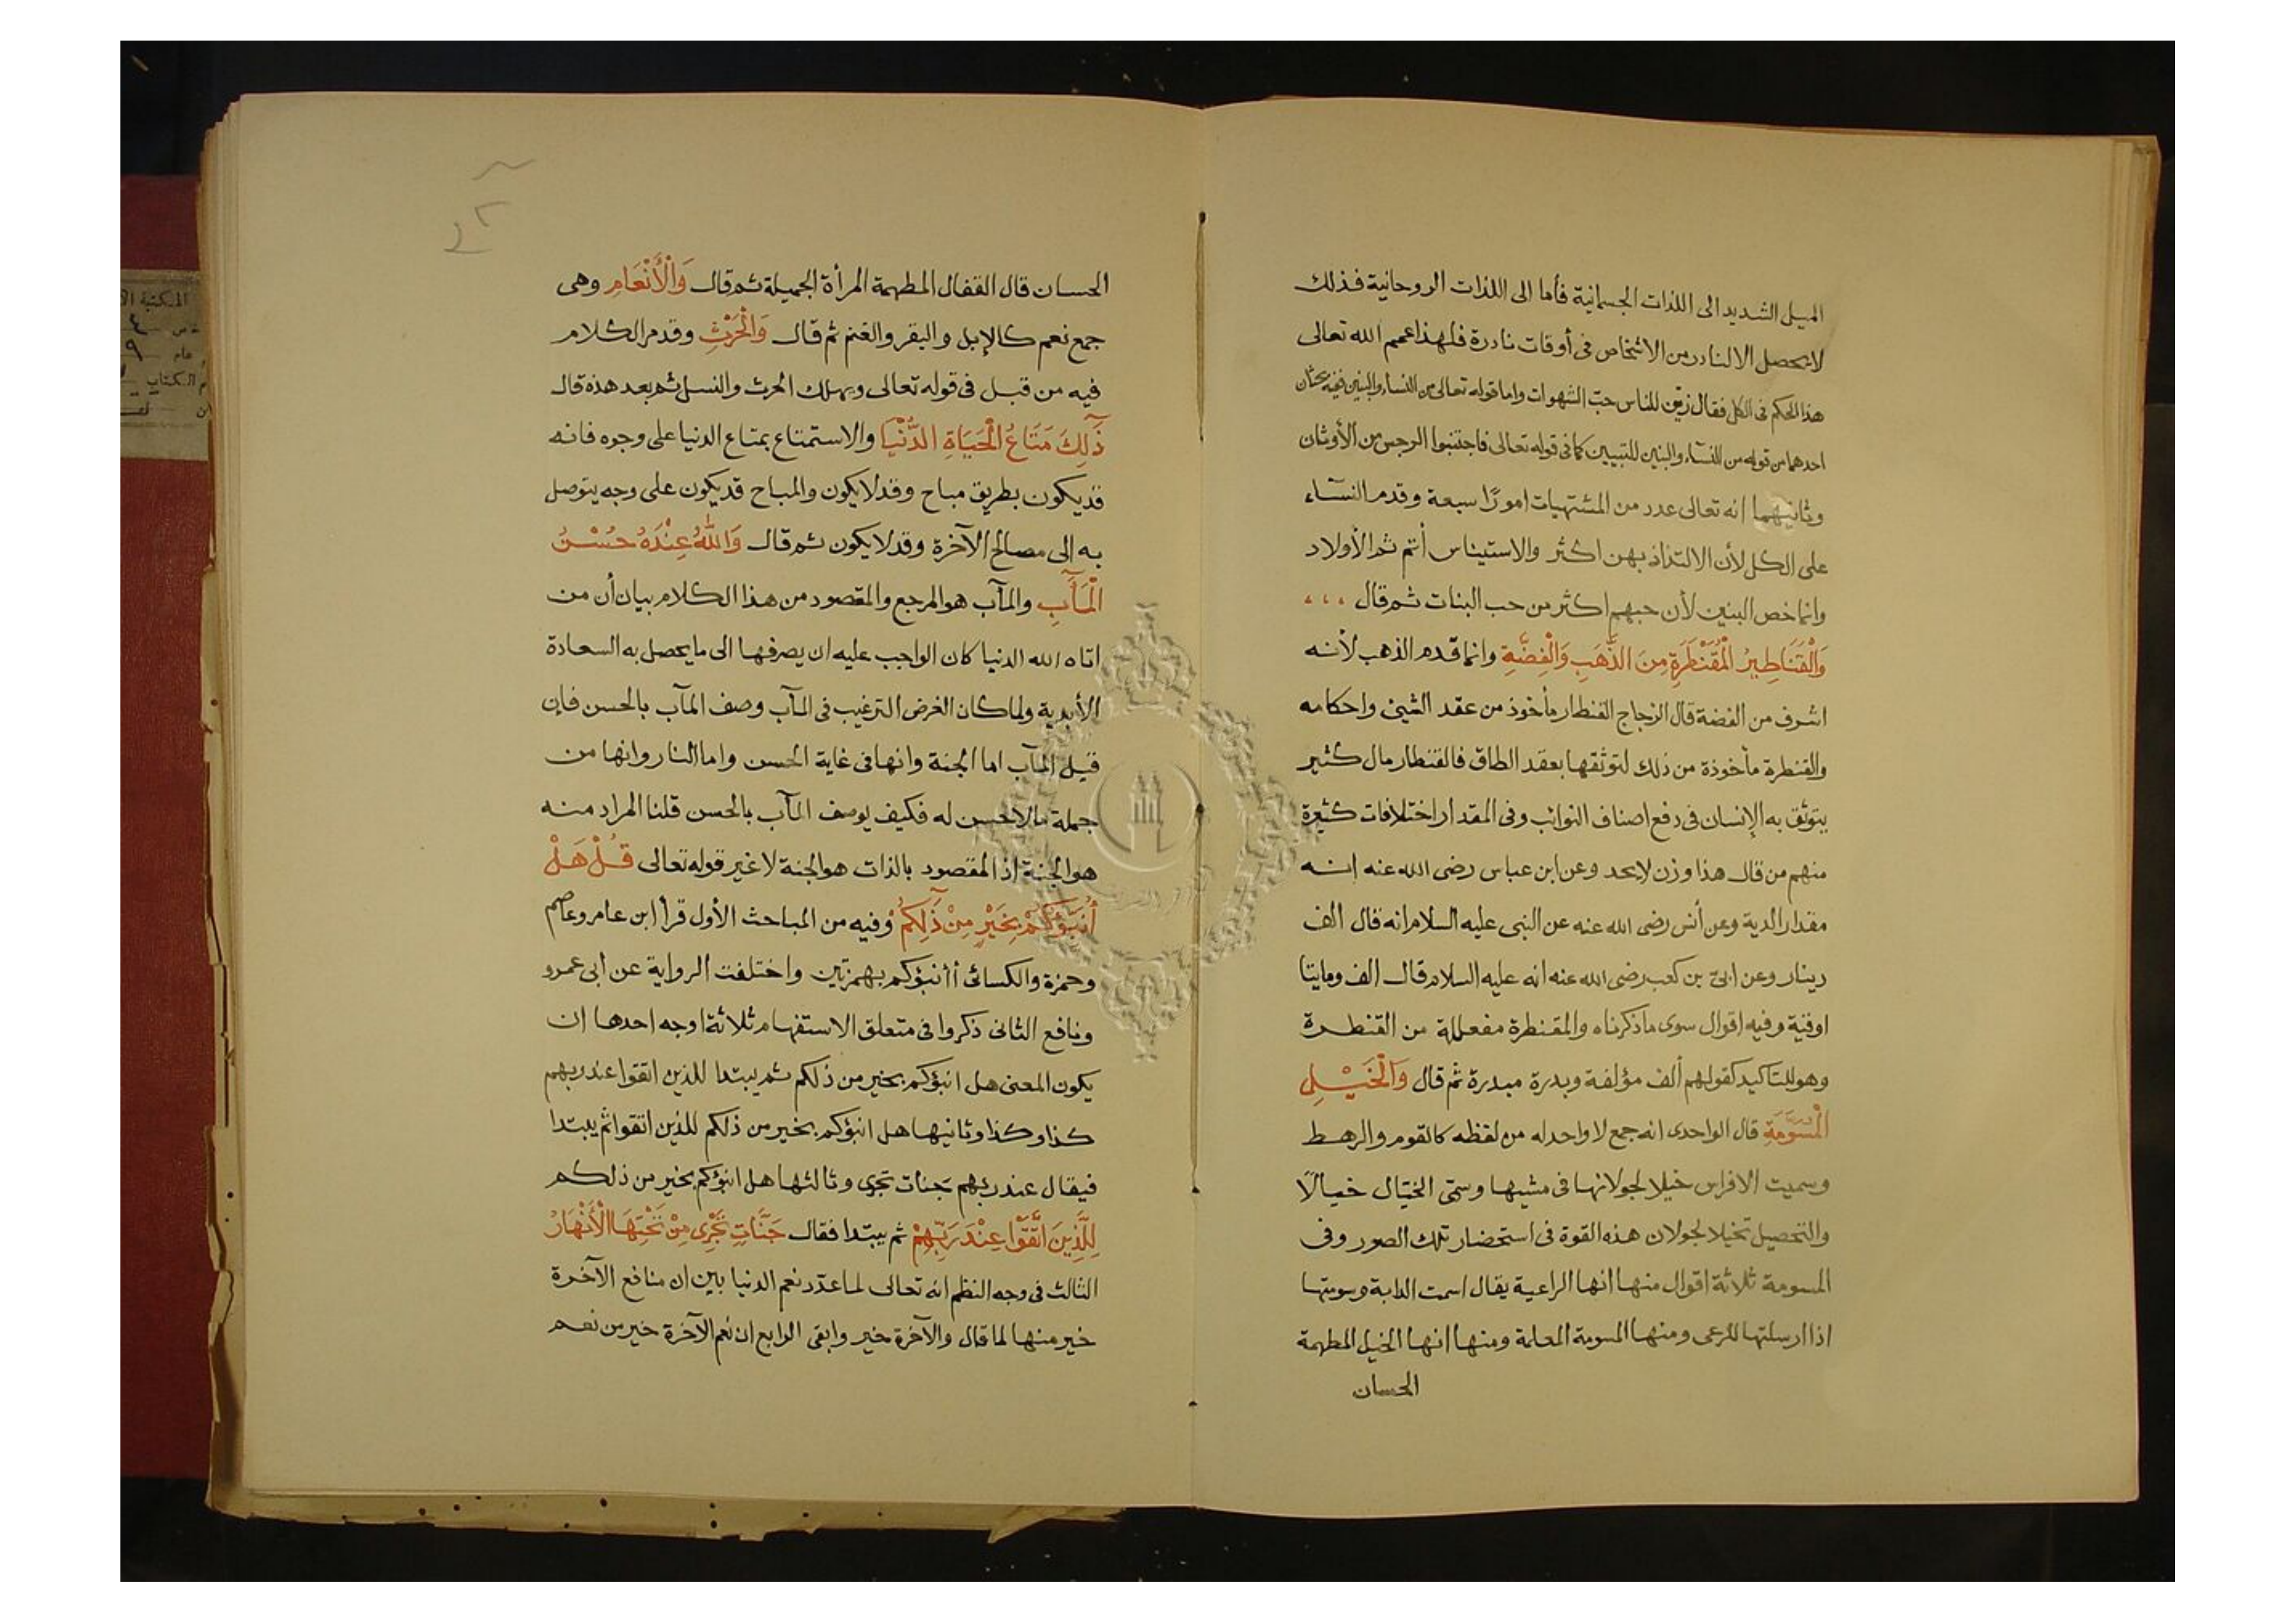 الميل الشديد الى اللذات الجسمانية فأما الى اللذات الروحانية فذلك
لا يحصل الا لنادر من الاشخاص فى أوقات نادرة فلهذا عمم الله تعالى
هذا الحكم فى الكل فقال زين للناس حبّ الشهوات واما قوله تعالى من النساء والبنين ففيه بحثان
احدهما من قوله من النسآء والبنين للتبيين كما فى قوله تعالى فاجتنبوا الرجس من الأوثان
وثانيهما انه تعالى عدد من المشتهيات امورًا سبعة وقدم النسآء
على الكل لأن الالتذاذ بهن اكثر والاستيناس أتم ثم الأولاد
وانما خص البنين لأن حبهم اكثر من حب البنات ثم قال ،،،
وَالْقَنَاطِيرِ الْمُقَنْطَرَةِ مِنَ الذَّهَبِ وَالْفِضَّةِ وانما قدم الذهب لأنه
اشرف من الفضة قال الزجاج القنطار مأخوذ من عقد الشيئ واحكامه
والقنطرة مأخوذة من ذلك لتوثقها بعقد الطاق فالقنطار مال كثير
يتوثق به الإنسان فى دفع اصناف النوائب وفى المقدار اختلافات كثيرة
منهم من قال هذا وزن لا يحد وعن ابن عباس رضى الله عنه انه
مقدار الدية وعن أنس رضى الله عنه عن النبى عليه السلام انه قال الف
دينار وعن ابىّ بن كعب رضى الله عنه انه عليه السلام قال الف ومايتا
اوقية وفيه اقوال سوى ما ذكرناه والمقنطرة مفعللة من القنطرة
وهو للتاكيد كقولهم ألف مؤلفة وبدرة مبدرة ثم قال وَالْخَيْلِ
الْمُسَوَّمَةِ قال الواحدى انه جمع لا واحد له من لفظه كالقوم والرهط
وسميت الافراس خيلا لجولانها فى مشيها وسمّى الخيال خيالًا
والتحصيل تخيلا لجولان هذه القوة فى استحضار تلك الصور وفى
المسومة ثلاثة اقوال منها انها الراعية يقال اسمت الدابة وسومتها
اذا ارسلتها للرعى ومنها المسومة المعلمة ومنها انها الخيل المطهمة
الحسان
الحسان قال القفال المطهمة المرأة الجميلة ثم قال وَالْأَنْعَامِ وهى
جمع نعم كالإبل والبقر والغنم ثم قال وَالْحَرْثِ وقدم الكلام
فيه من قبل فى قوله تعالى ويهلك الحرث والنسل ثم بعد هذه قال
ذَٰلِكَ مَتَاعُ الْحَيَاةِ الدُّنْيَا والاستمتاع بمتاع الدنيا على وجوه فانه
قد يكون بطريق مباح وقد لا يكون والمباح قد يكون على وجه يتوصل
به الى مصالح الآخرة وقد لا يكون ثم قال وَاللهُ عِنْدَهُ حُسْنُ
الْمَآَبِ والمآب هو المرجع والمقصود من هذا الكلام بيان أن من
اتاه الله الدنيا كان الواجب عليه ان يصرفها الى ما يحصل به السعادة
الأبدية ولما كان الغرض الترغيب فى المآب وصف المآب بالحسن فإن
قيل المآب اما الجنة وانها فى غاية الحسن واما النار وانها من
جملة ما لا حسن له فكيف يوصف المآب بالحسن قلنا المراد منه
هو الجنة اذ المقصود بالذات هو الجنة لا غير قوله تعالى قُلْ هَلْ
أُنَبِّؤُكُمْ بِخَيْرٍ مِنْ ذَٰلِكُمْ وفيه من المباحث الأول قرأ ابن عامر وعاصم
وحمزة والكسائى أأنبؤكم بهمزتين واختلفت الرواية عن ابى عمرو
ونافع الثانى ذكروا فى متعلق الاستفهام ثلاثة اوجه احدها ان
يكون المعنى هل انبؤكم بخير من ذلكم ثم يبتدا للذين اتقوا عند ربهم
كذا وكذا وثانيها هل انبؤكم بخير من ذلكم للذين اتقوا ثم يبتدا
فيقال عند ربهم جنات تجرى وثالثها هل انبؤكم بخير من ذلكم
لِلَّذِينَ اتَّقَوْا عِنْدَ رَبِّهِمْ ثم يبتدا فقال جَنَّاتٍ تَجْرِى مِنْ تَحْتِهَا الْأَنْهَارُ
الثالث فى وجه النظم انه تعالى لما عدّد نعم الدنيا بين ان منافع الآخرة
خير منها لما قال والآخرة خير وابقى الرابع ان نعم الآخرة خير من نعم